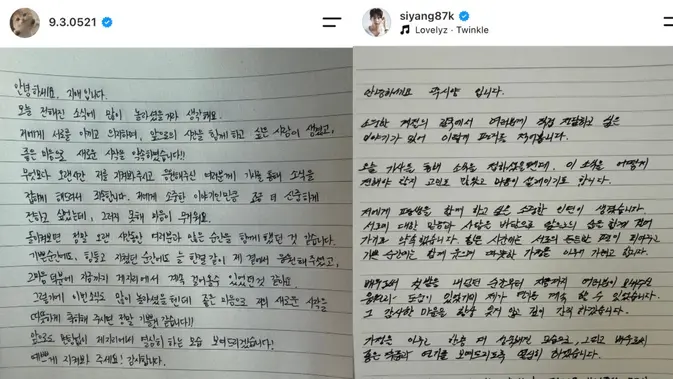 9.3.0521
안녕하세요. 지애입니다.
오늘 전해진 소식에 많이 놀라셨을거라 생각해요.
저에게 서로를 아끼고 의지하며, 앞으로의 시간을 함께 하고 싶은 사람이 생겼고,
좋은 마음으로 새로운 시작을 약속하였습니다!!
무엇보다 오랜시간 저를 지켜봐주시고 응원해주신 여러분께 기사를 통해 소식을
접하게 해드려서 죄송합니다. 저에게 소중한 이야기인만큼 조금 더 신중하게
전하고 싶었는데, 그러지 못해 마음이 무거워요.
돌이켜보면 정말 오랜 시간동안 여러분과 많은 순간을 함께 했던 것 같습니다.
기쁜순간에도, 힘들고 지쳤던 순간에도 늘 한결 같이 제 곁에서 응원해주셨고,
그 마음 덕분에 지금까지 제자리에서 계속 걸어올수 있었던것 같아요.
그렇기에 이번소식도 많이 놀라셨을텐데 좋은 마음으로 저의 새로운 시작을
따뜻하게 축하해 주시면 정말 기쁠것 같습니다!!
앞으로도 변함없이 제자리에서 열심히 하는 모습 보여드리겠습니다!
예쁘게 지켜봐 주세요! 감사합니다.
siyang87k
Lovelyz · Twinkle
안녕하세요 곽시양 입니다.
소중한 계절의 길목에서 여러분께 직접 전달하고 싶은
이야기가 있어 이렇게 편지를 적어봅니다.
오늘 기사를 통해 소식을 접하셨을텐데, 이 소식을 어떻게
전해야 할지 고민도 많았고 마음이 설레이기도 합니다.
저에게 평생을 함께 하고 싶은 소중한 인연이 생겼습니다.
서로에 대한 믿음과 사랑을 바탕으로 앞으로의 삶을 함께 걸어
가기로 약속했습니다. 힘든 시간에는 서로의 든든한 편이 되어주고
기쁜 순간에는 함께 웃으며 따뜻한 가정을 이루어 가려고 합니다.
배우로서 첫발을 내딛던 순간부터 지금까지 여러분이 보내주신
응원과 도움이 있었기에 제가 연기를 계속 할 수 있었습니다.
그 감사한 마음을 항상 잊지 않고 깊이 간직 하겠습니다.
가정을 이루고 한층 더 성숙해진 모습으로, 그리고 배우로써
좋은 작품과 연기를 보여드리도록 열심히 하겠습니다.